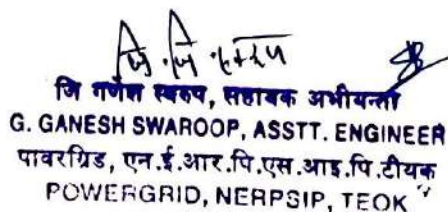 जि. जि. स्वरूप
जि गणेश स्वरुप, सहायक अभीयन्ता
G. GANESH SWAROOP, ASSTT. ENGINEER
पावरग्रिड, एन.ई.आर.पि.एस.आइ.पि.टीयक
POWERGRID, NERPSIP, TEOK